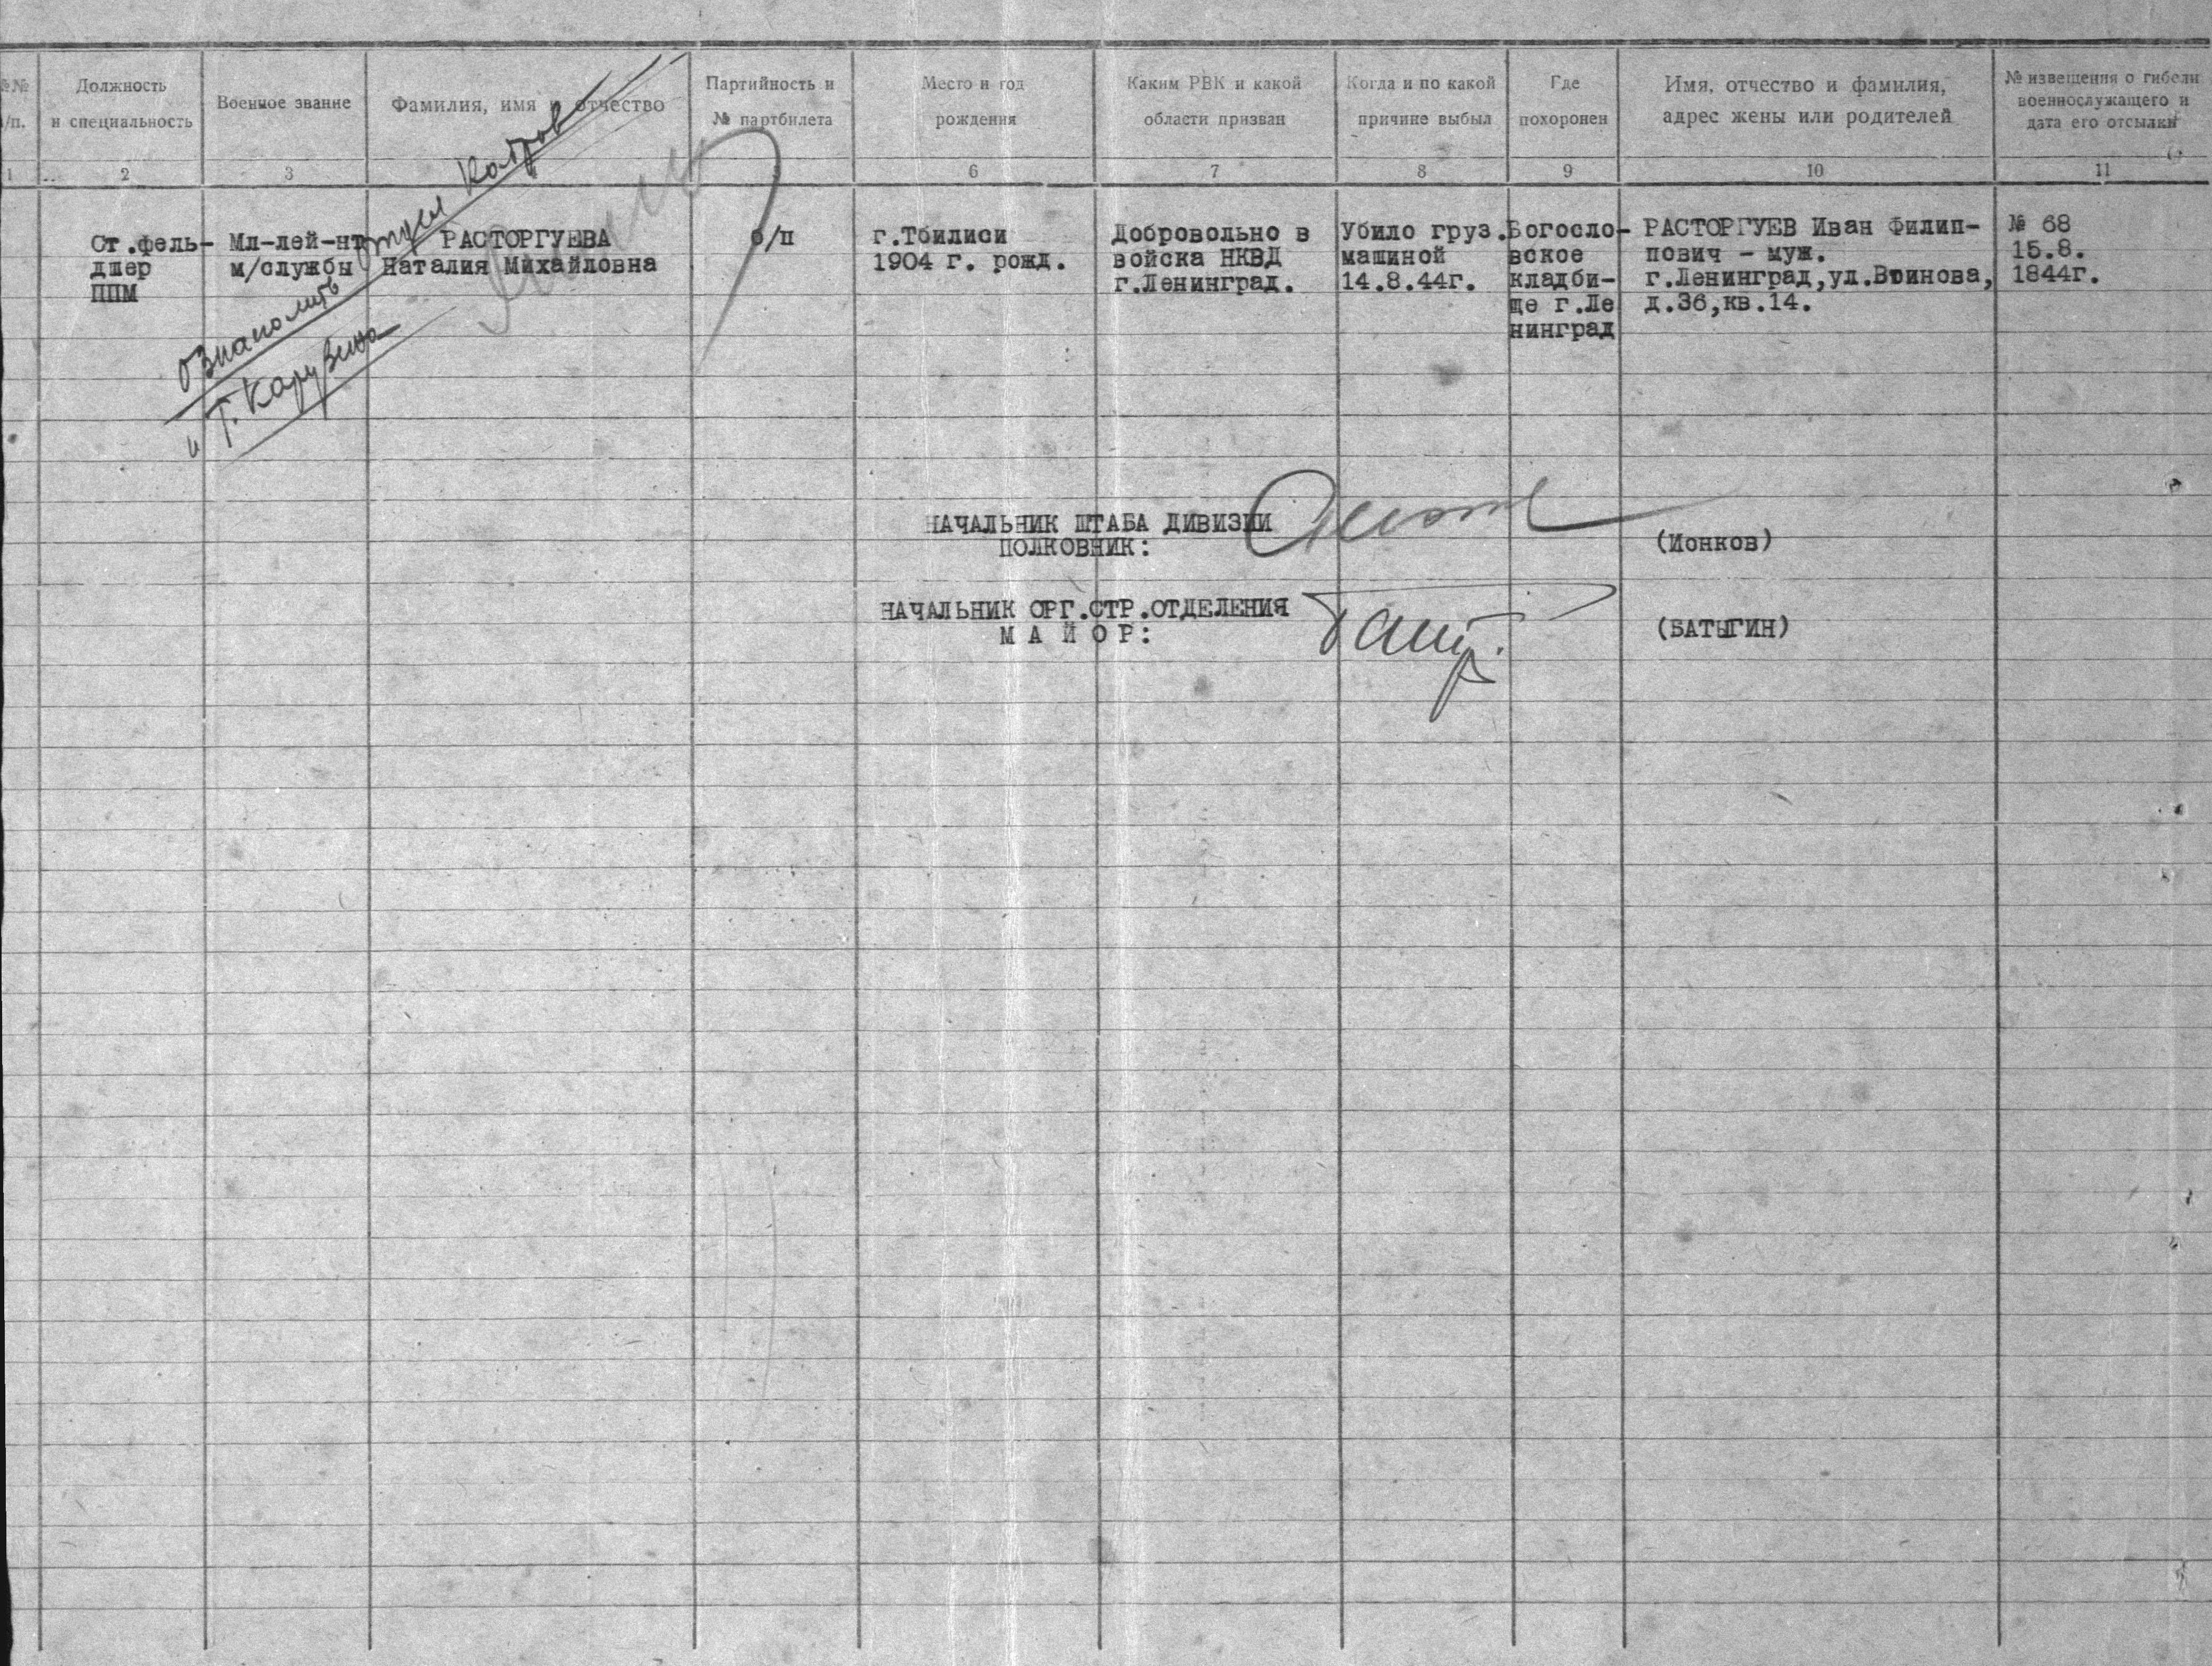 №№ п/п.
Должность
и специальность
Военное звание
Фамилия, имя и отчество
Партийность и
№ партбилета
Место и год
рождения
Каким РВК и какой
области призван
Когда и по какой
причине выбыл
Где
похоронен
Имя, отчество и фамилия,
адрес жены или родителей
№ извещения о гибели
военнослужащего и
дата его отсылки
1 2 3 6 7 8 9 10 11
Ст.фель-
дшер
ППМ
Мл-лей-нт
м/службы
РАСТОРГУЕВА
Наталия Михайловна
б/п
г.Тбилиси
1904 г. рожд.
Добровольно в
войска НКВД
г.Ленинград.
Убило груз.
машиной
14.8.44г.
Богосло-
вское
кладби-
ще г.Ле
нинград
РАСТОРГУЕВ Иван Филип-
пович - муж.
г.Ленинград,ул.Воинова,
д.36,кв.14.
№ 68
15.8.
1844г.
Ознакомить
и Т.
НАЧАЛЬНИК ШТАБА ДИВИЗИИ
ПОЛКОВНИК:
(Ионков)
НАЧАЛЬНИК ОРГ.СТР.ОТДЕЛЕНИЯ
М А Й О Р:
(БАТЫГИН)